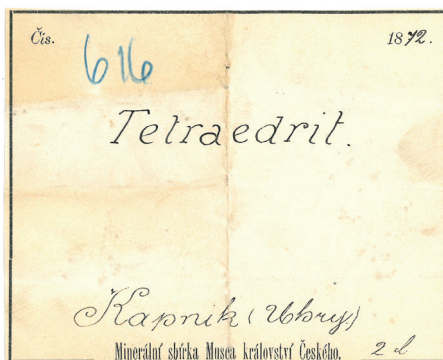 Čís. 616 1872.
Tetraedrit.
Kapnik (Uhry)
Minerální sbírka Musea království Českého. 2 d